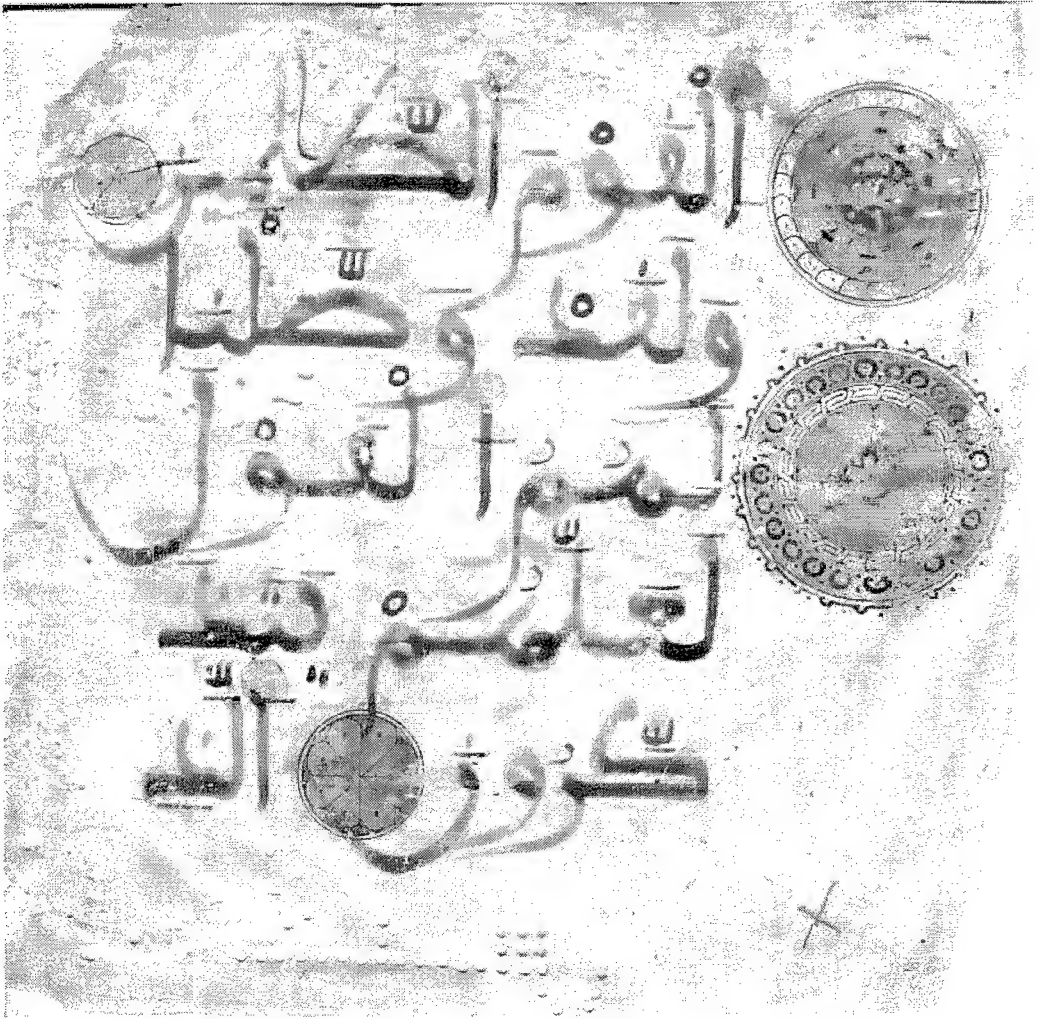 ٱلْقَوْمَ ٱلظَّٰلِمِينَ
وَلَقَدْ وَصَّلْنَا
لَهُمُ ٱلْقَوْلَ
لَعَلَّهُمْ يَتَذَ
كَّرُونَ ٱلَّذِ